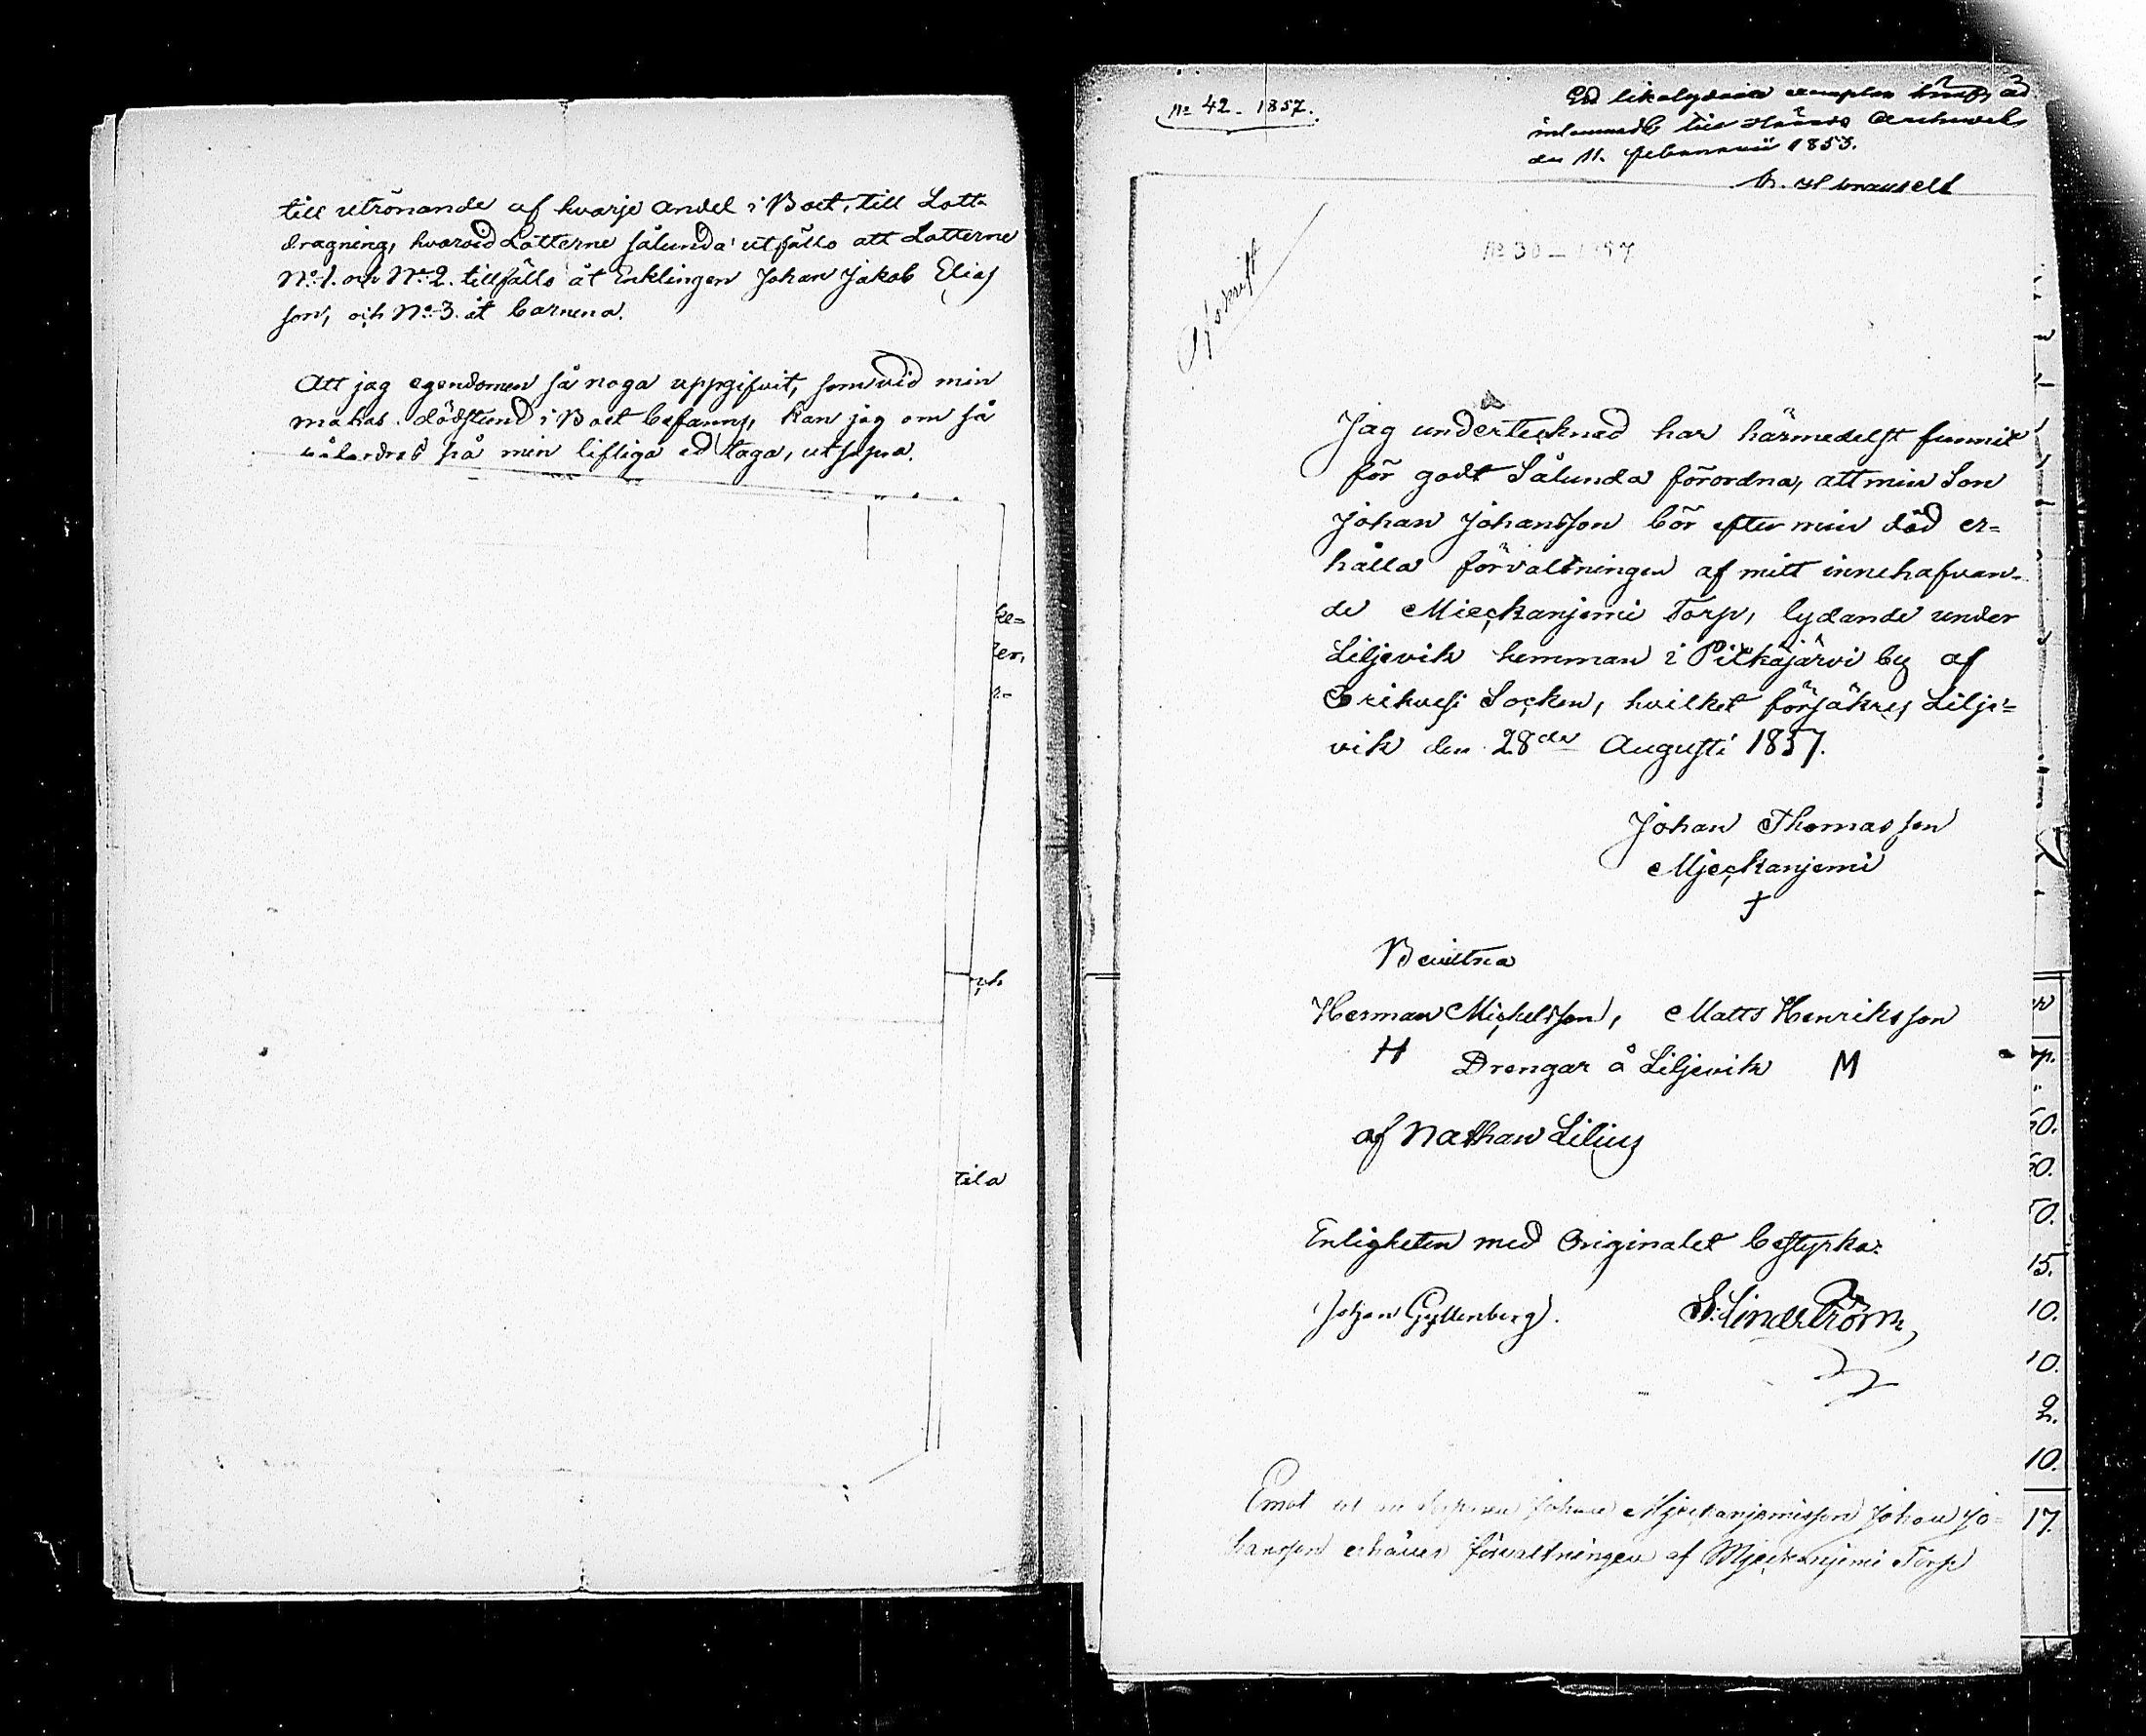 till utrönande af hvarje andel i Boet, till Lott-
dragning, hvarvid Lotterne sålunda utföllo att Lotterne
No 1. och No 2. tillföllo åt Enklingen Johan Jakob Elias
son, och No 3. åt barnena.
Att jag egendomen så noga uppgifvit, som vid min
makas dödstund i Boet befanns, kan jag om så
på min lifliga ed taga, utsägra.
ke=
er,
och
tila
No 42 - 1857.
Ett likalydande exemplar
inlemnadt till Härads Archivet
den 11. Februarii 1853.
No 30 - 1857
Afskrift
Jag undertecknad har härmedelst funnit
för godt Sålunda förordna, att min Son
Johan Johansson bör efter min död er=
hålla förvaltningen af mitt innehafvan-
de Mieckanjemi Torp, lydande under
Liljevik hemman i Pitkäjärvi by af
Erikvesi Socken, hvilket försäkras, Lilje=
vik den 28de Augusti 1837.
Johan Thomasson
Mjeckanjemi
+
Bevittna
Herman Mickelsson, Matts Henriksson
H Drengar å Liljevik M
af Nathan Lilius
Enligheten med Originalet bestyrka:
Johan Gyllenberg. S. Lindström
Johan Mjeckanjemis son Johan Jo=
hansson erhåller förvaltningen af Mjeckanjemi Torp
er
50.
50.
50.
15.
10.
10.
2.
10.
17.